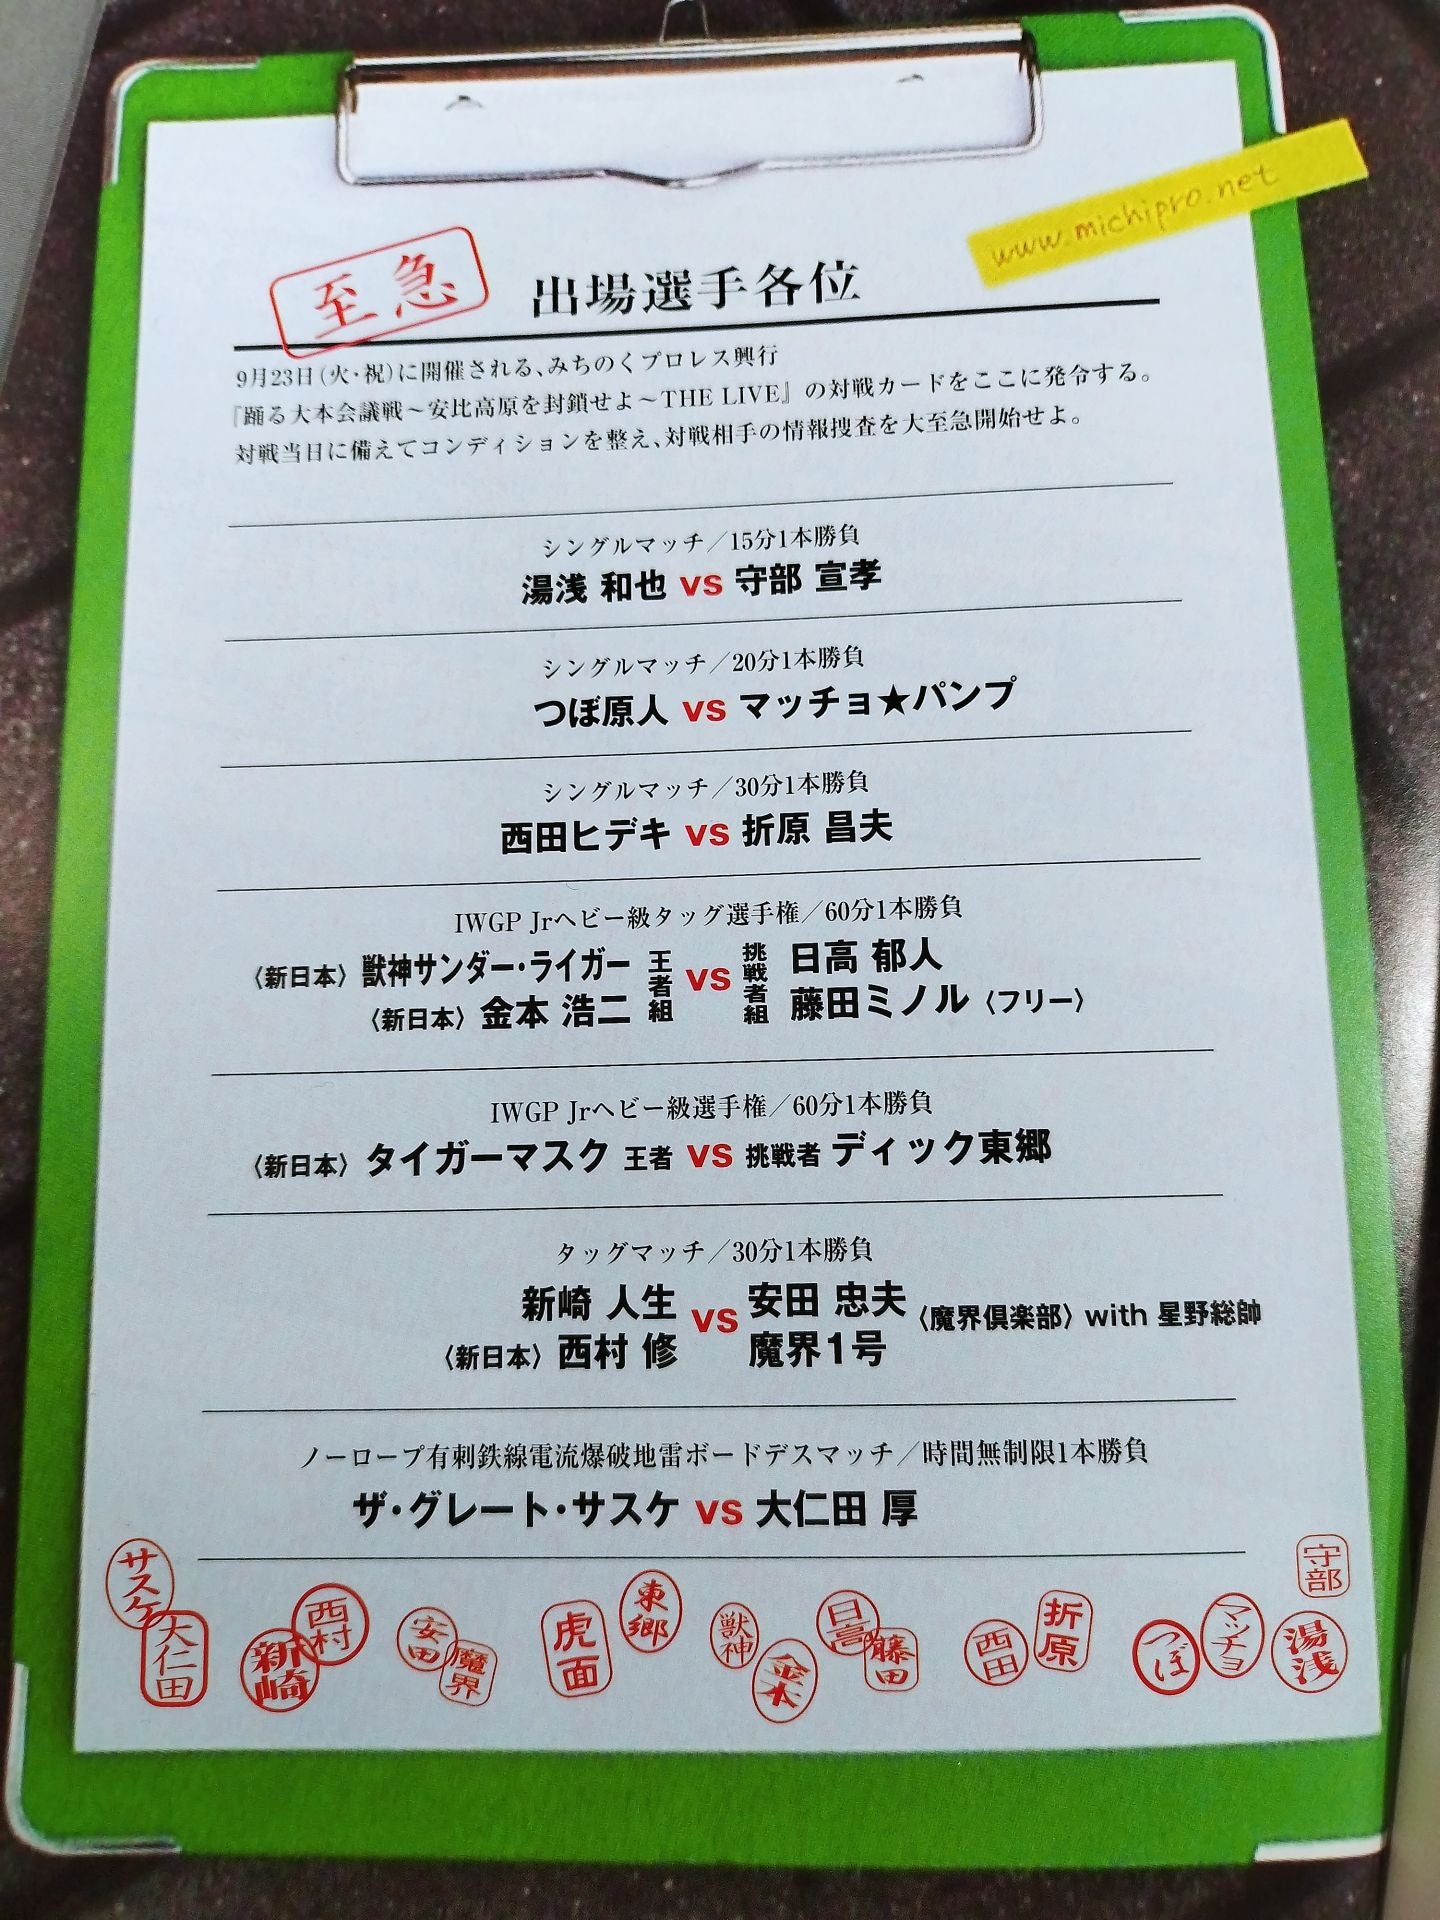 www.michipro.net
至急
出場選手各位
9月23日(火・祝)に開催される、みちのくプロレス興行
『踊る大本会議戦〜安比高原を封鎖せよ〜THE LIVE』の対戦カードをここに発令する。
対戦当日に備えてコンディションを整え、対戦相手の情報捜査を大至急開始せよ。
シングルマッチ/15分1本勝負
湯浅 和也 vs 守部 宣孝
シングルマッチ/20分1本勝負
つぼ原人 vs マッチョ★パンプ
シングルマッチ/30分1本勝負
西田ヒデキ vs 折原 昌夫
IWGP Jrヘビー級タッグ選手権/60分1本勝負
〈新日本〉 獣神サンダー・ライガー 王者組 vs 挑戦者組 日高 郁人
〈新日本〉 金本 浩二 藤田ミノル 〈フリー〉
IWGP Jrヘビー級選手権/60分1本勝負
〈新日本〉 タイガーマスク 王者 vs 挑戦者 ディック東郷
タッグマッチ/30分1本勝負
新崎 人生 vs 安田 忠夫 〈魔界倶楽部〉 with 星野総帥
〈新日本〉 西村 修 魔界1号
ノーロープ有刺鉄線電流爆破地雷ボードデスマッチ/時間無制限1本勝負
ザ・グレート・サスケ vs 大仁田 厚
サスケ
大仁田
新崎
西村
安田
魔界
虎面
東郷
獣神
金本
日高
藤田
西田
折原
つぼ
マッチョ
湯浅
守部